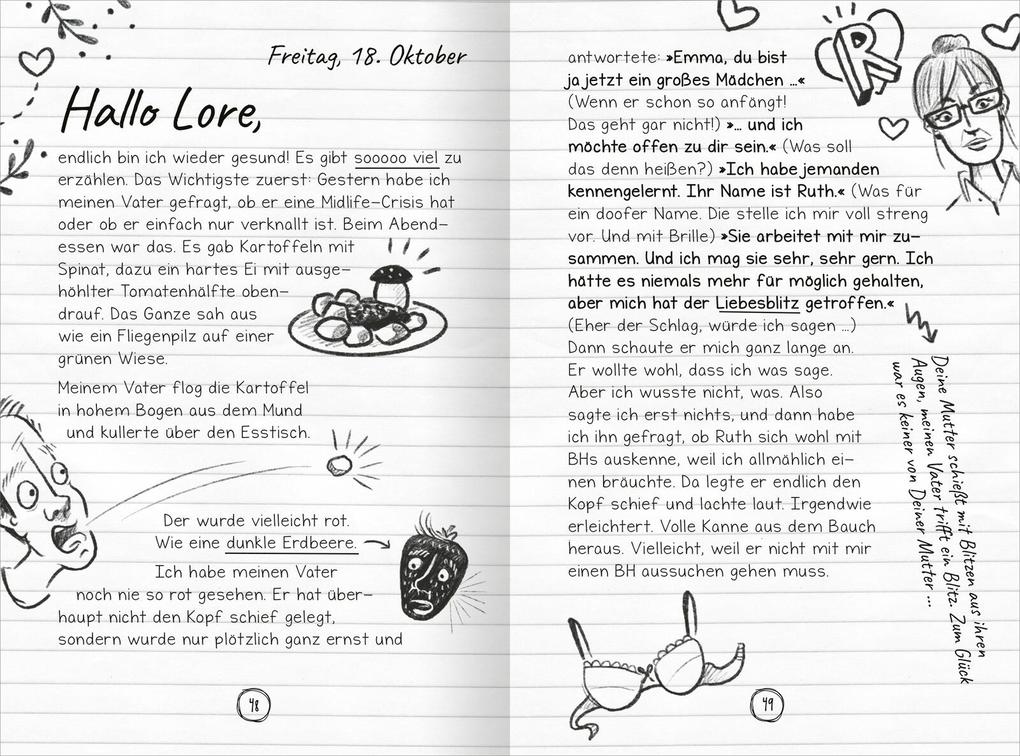 Freitag, 18. Oktober
Hallo Lore,
endlich bin ich wieder gesund! Es gibt sooooo viel zu
erzählen. Das Wichtigste zuerst: Gestern habe ich
meinen Vater gefragt, ob er eine Midlife-Crisis hat
oder ob er einfach nur verknallt ist. Beim Abend-
essen war das. Es gab Kartoffeln mit
Spinat, dazu ein hartes Ei mit ausge-
höhlter Tomatenhälfte oben-
drauf. Das Ganze sah aus
wie ein Fliegenpilz auf einer
grünen Wiese.
Meinem Vater flog die Kartoffel
in hohem Bogen aus dem Mund
und kullerte über den Esstisch.
Der wurde vielleicht rot.
Wie eine dunkle Erdbeere.
Ich habe meinen Vater
noch nie so rot gesehen. Er hat über-
haupt nicht den Kopf schief gelegt,
sondern wurde nur plötzlich ganz ernst und
48
R
antwortete: »Emma, du bist
ja jetzt ein großes Mädchen …«
(Wenn er schon so anfängt!
Das geht gar nicht!) »… und ich
möchte offen zu dir sein.« (Was soll
das denn heißen?) »Ich habe jemanden
kennengelernt. Ihr Name ist Ruth.« (Was für
ein doofer Name. Die stelle ich mir voll streng
vor. Und mit Brille) »Sie arbeitet mit mir zu-
sammen. Und ich mag sie sehr, sehr gern. Ich
hätte es niemals mehr für möglich gehalten,
aber mich hat der Liebesblitz getroffen.«
(Eher der Schlag, würde ich sagen …)
Dann schaute er mich ganz lange an.
Er wollte wohl, dass ich was sage.
Aber ich wusste nicht, was. Also
sagte ich erst nichts, und dann habe
ich ihn gefragt, ob Ruth sich wohl mit
BHs auskenne, weil ich allmählich ei-
nen bräuchte. Da legte er endlich den
Kopf schief und lachte laut. Irgendwie
erleichtert. Volle Kanne aus dem Bauch
heraus. Vielleicht, weil er nicht mit mir
einen BH aussuchen gehen muss.
Deine Mutter schießt mit Blitzen aus ihren
Augen, meinen Vater trifft ein Blitz. Zum Glück
war es keiner von Deiner Mutter …
49